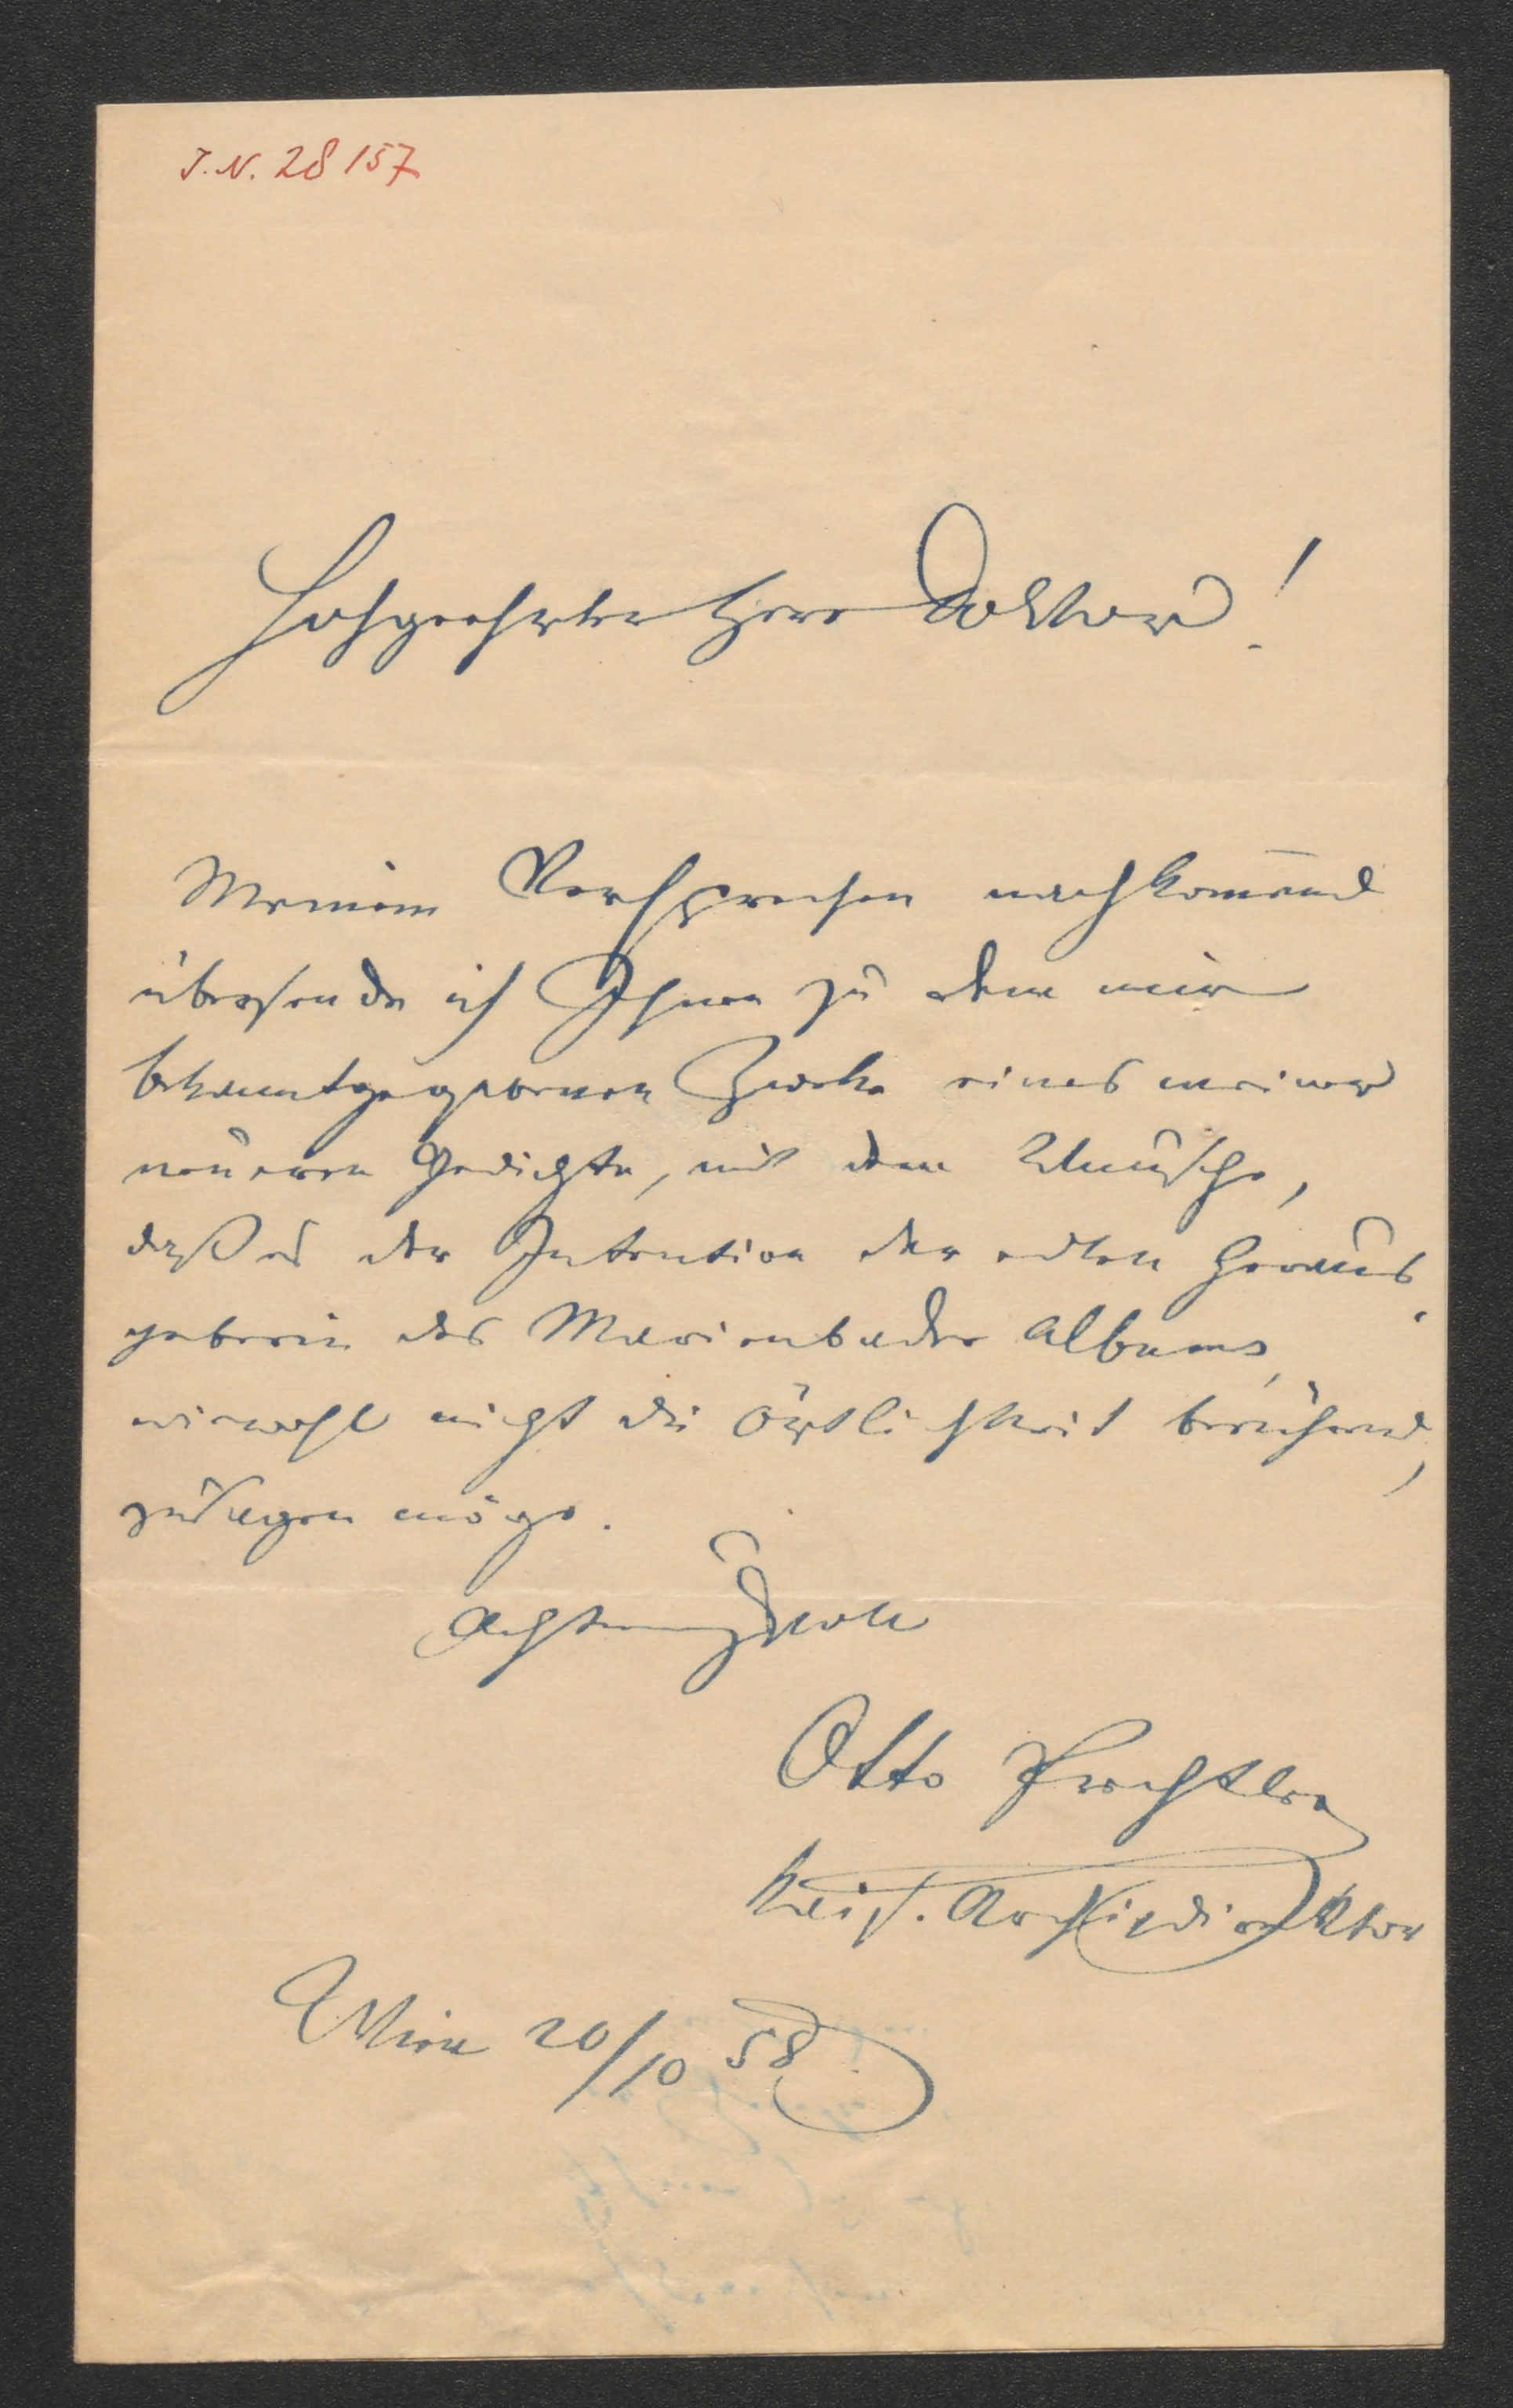 J. N. 28157
Hochgeehrter Herr Doktor!
Meinem Versprechen nachkom̅end
übersende ich Ihnen zu dem mir
bekanntgegebenen Zwecke eines meiner
neueren Gedichte, mit dem Wunsche,
daß es der Intention der edlen Heraus-
geberin des Marienbader Albums,
wiewohl nicht die Örtlichkeit berührend,
zusagen möge.
Achtungsvoll
Otto Prechtler
kais. Archivdirektor
Wien 20/10 58